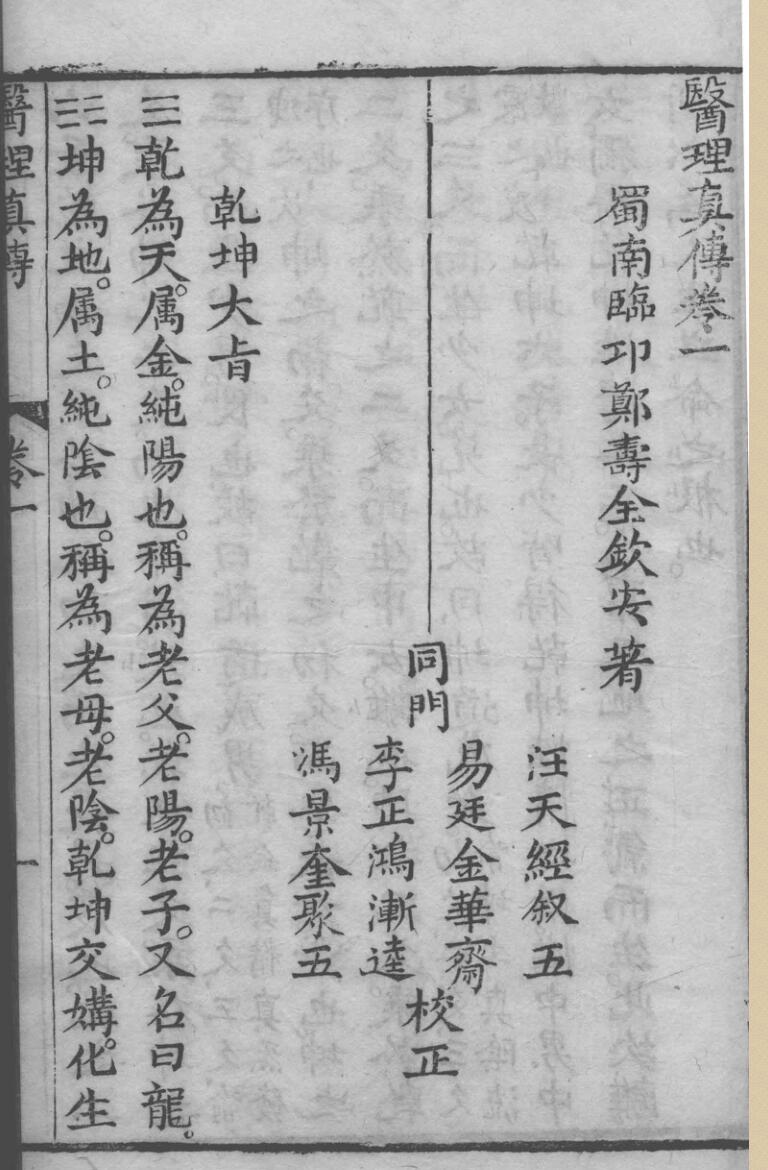 醫理真傳卷一
蜀南臨卭鄭壽全欽安著
汪天經叙五
易廷金華齋
同門
校正
李正鴻漸逵
馮景奎聚五
乾坤大旨
☰乾為天。属金。純陽也。稱為老父。老陽。老子。又名曰龍。
☷坤為地。属土。純陰也。稱為老母。老陰。乾坤交媾。化生
醫理真傳
卷一
一